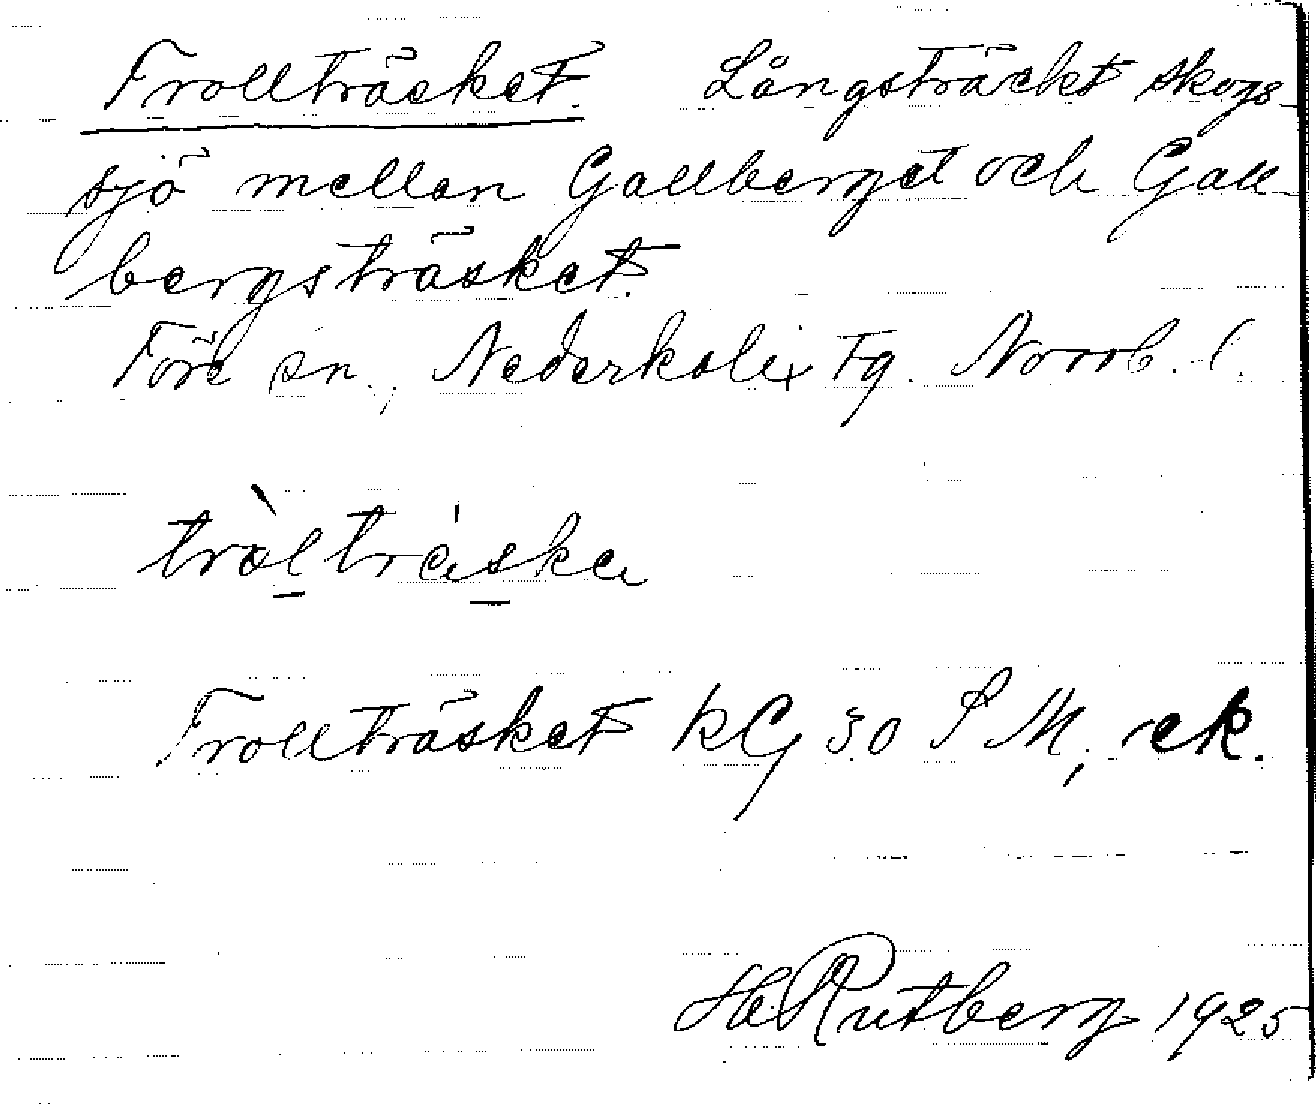 Trollträsket. Långsträckt skogs
sjö mellan Gallberget och Gall
bergsträsket.
Töre sn., Nederkalix tg. Norrb. l.
tròlträska
Trollträsket KG 30 S M, ek.
H. Rutberg 1925